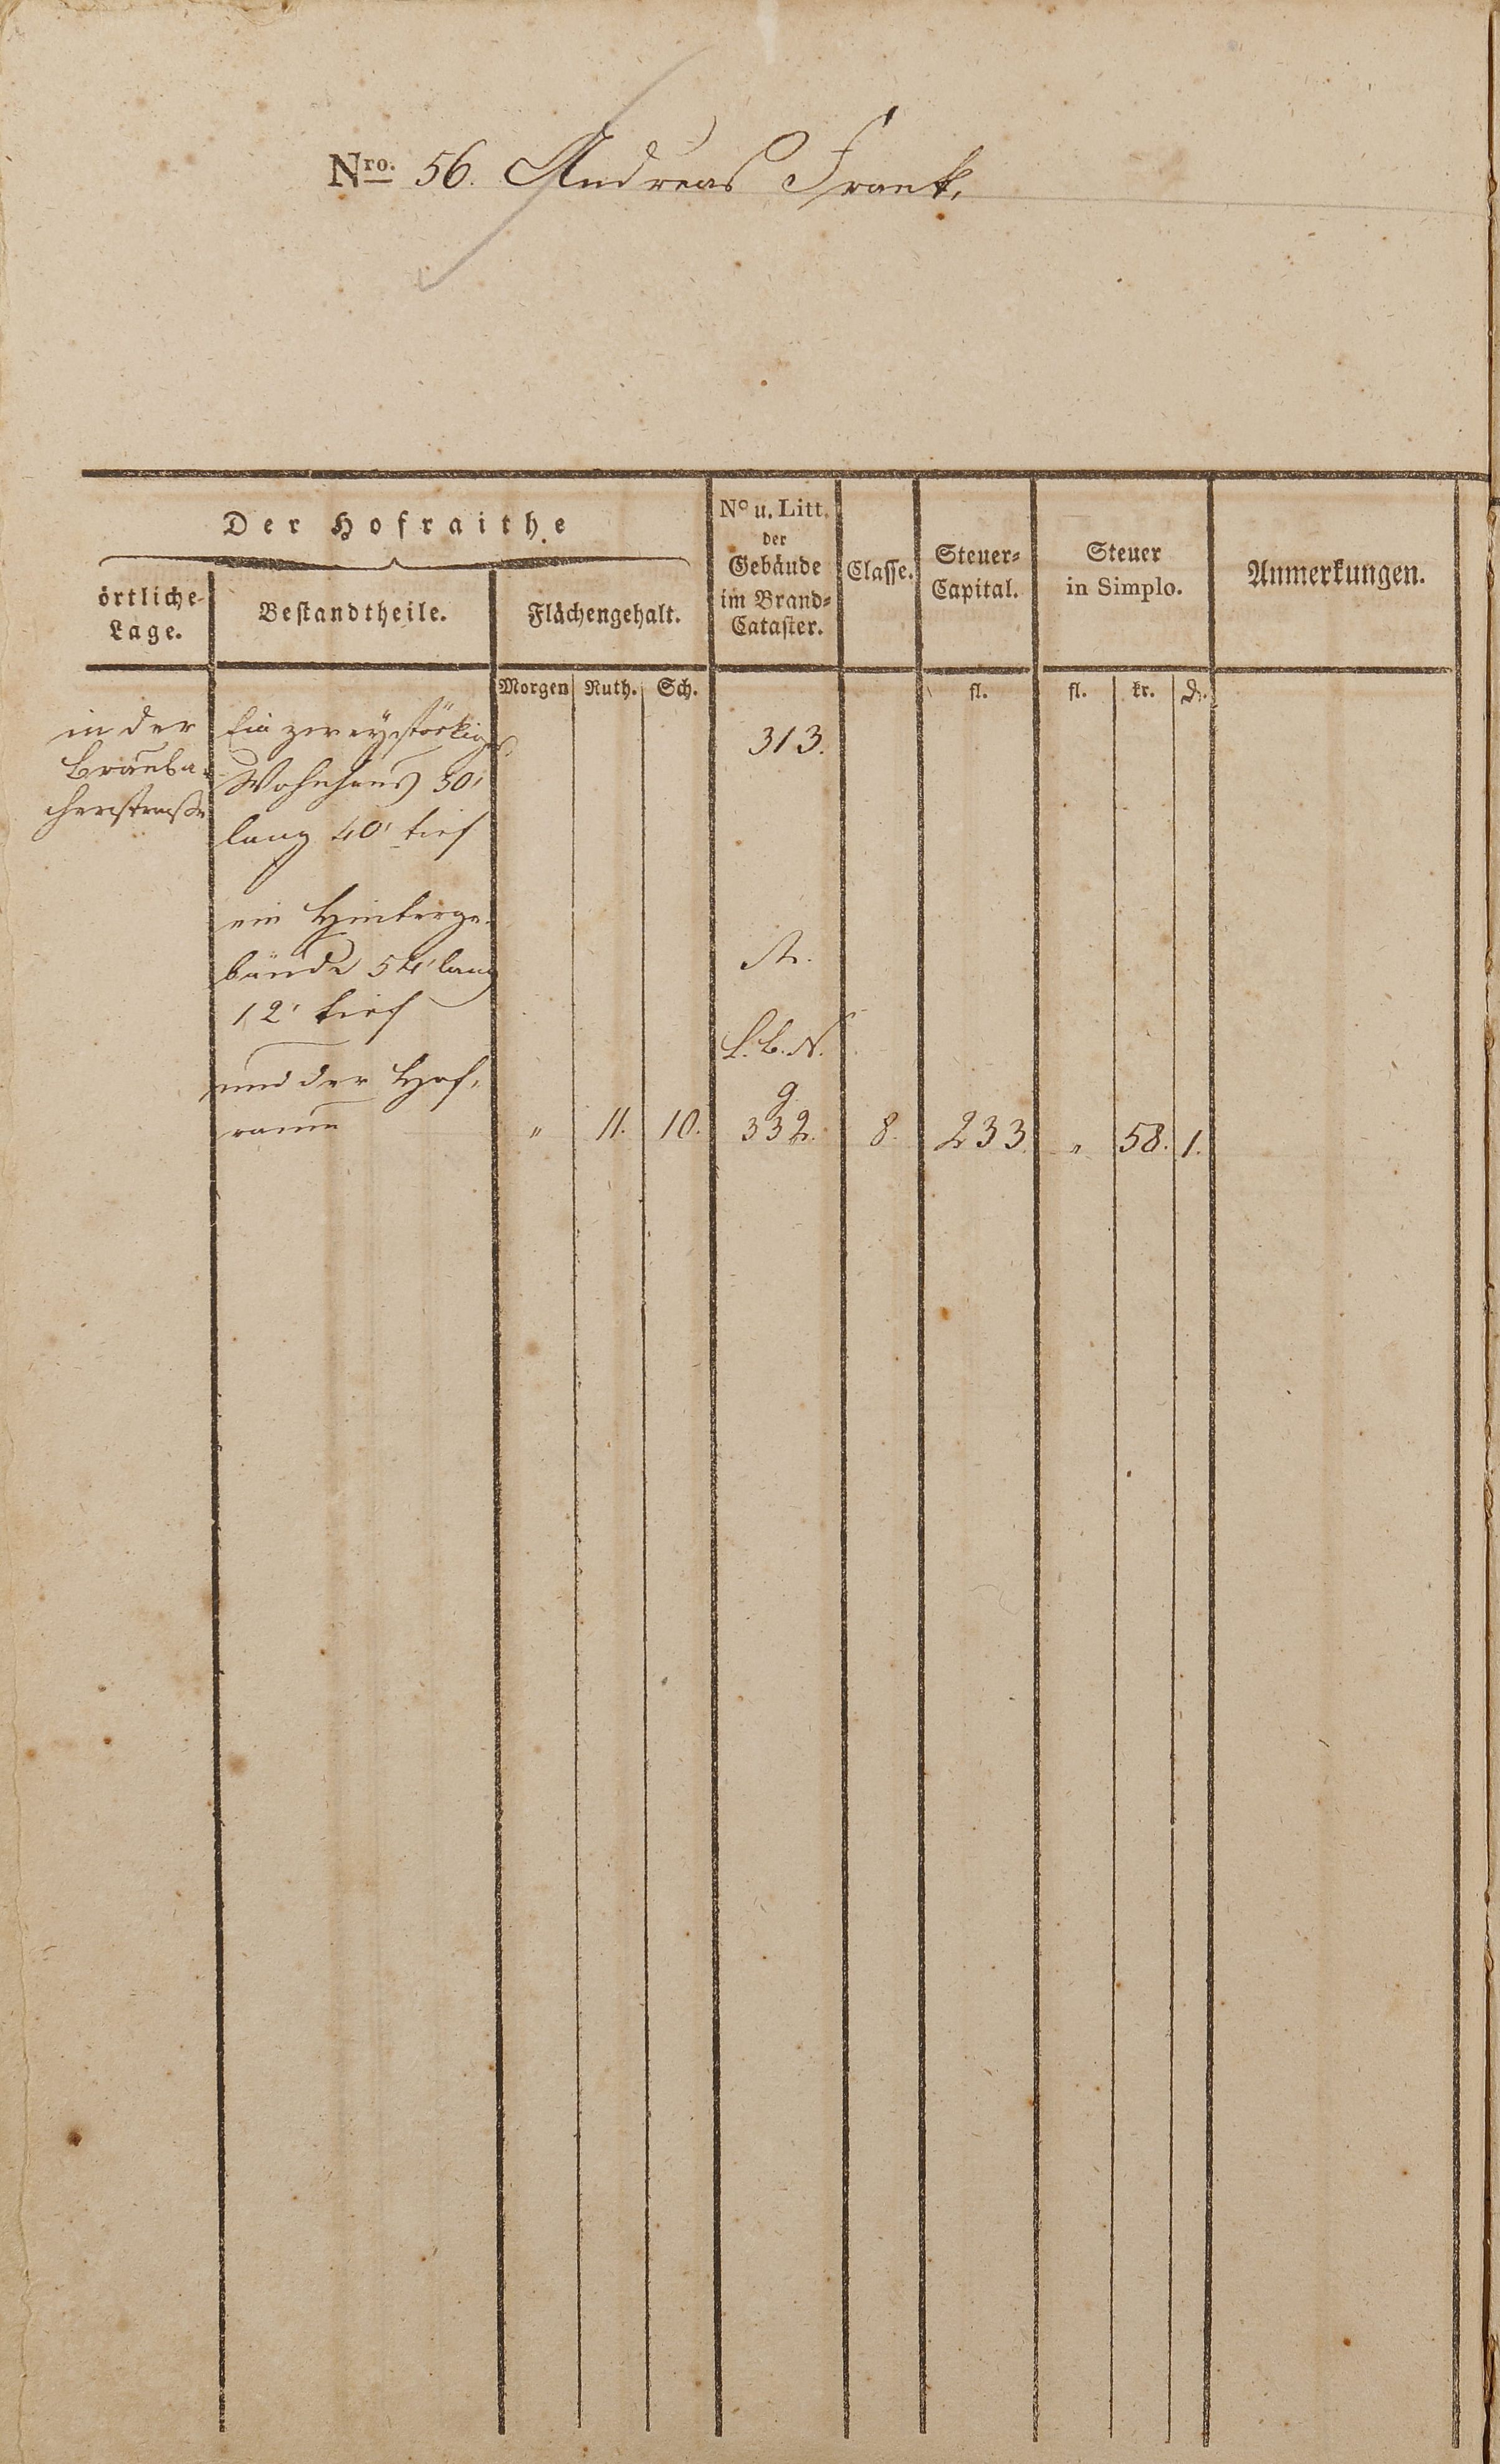 Nro. 56. Andreas Frank.
Der Hofraithe
örtliche
Lage.
Bestandtheile.
Flächengehalt.
No u. Litt.
der
Gebäude
im Brand-
Cataster.
Classe.
Steuer-
Capital.
Steuer
in Simplo.
Anmerkungen.
Morgen Ruth. Sch. fl. fl. kr. d.
in der
Brauba-
cherstraße
Ein zweystöckiges
Wohnhaus 30'
lang 40' tief
313.
ein Hinterge-
bäude 54' lang
12' tief
und der Hof-
raum
A.
L. b. N.
g
" 11. 10. 332. 8. 233. " 58. 1.